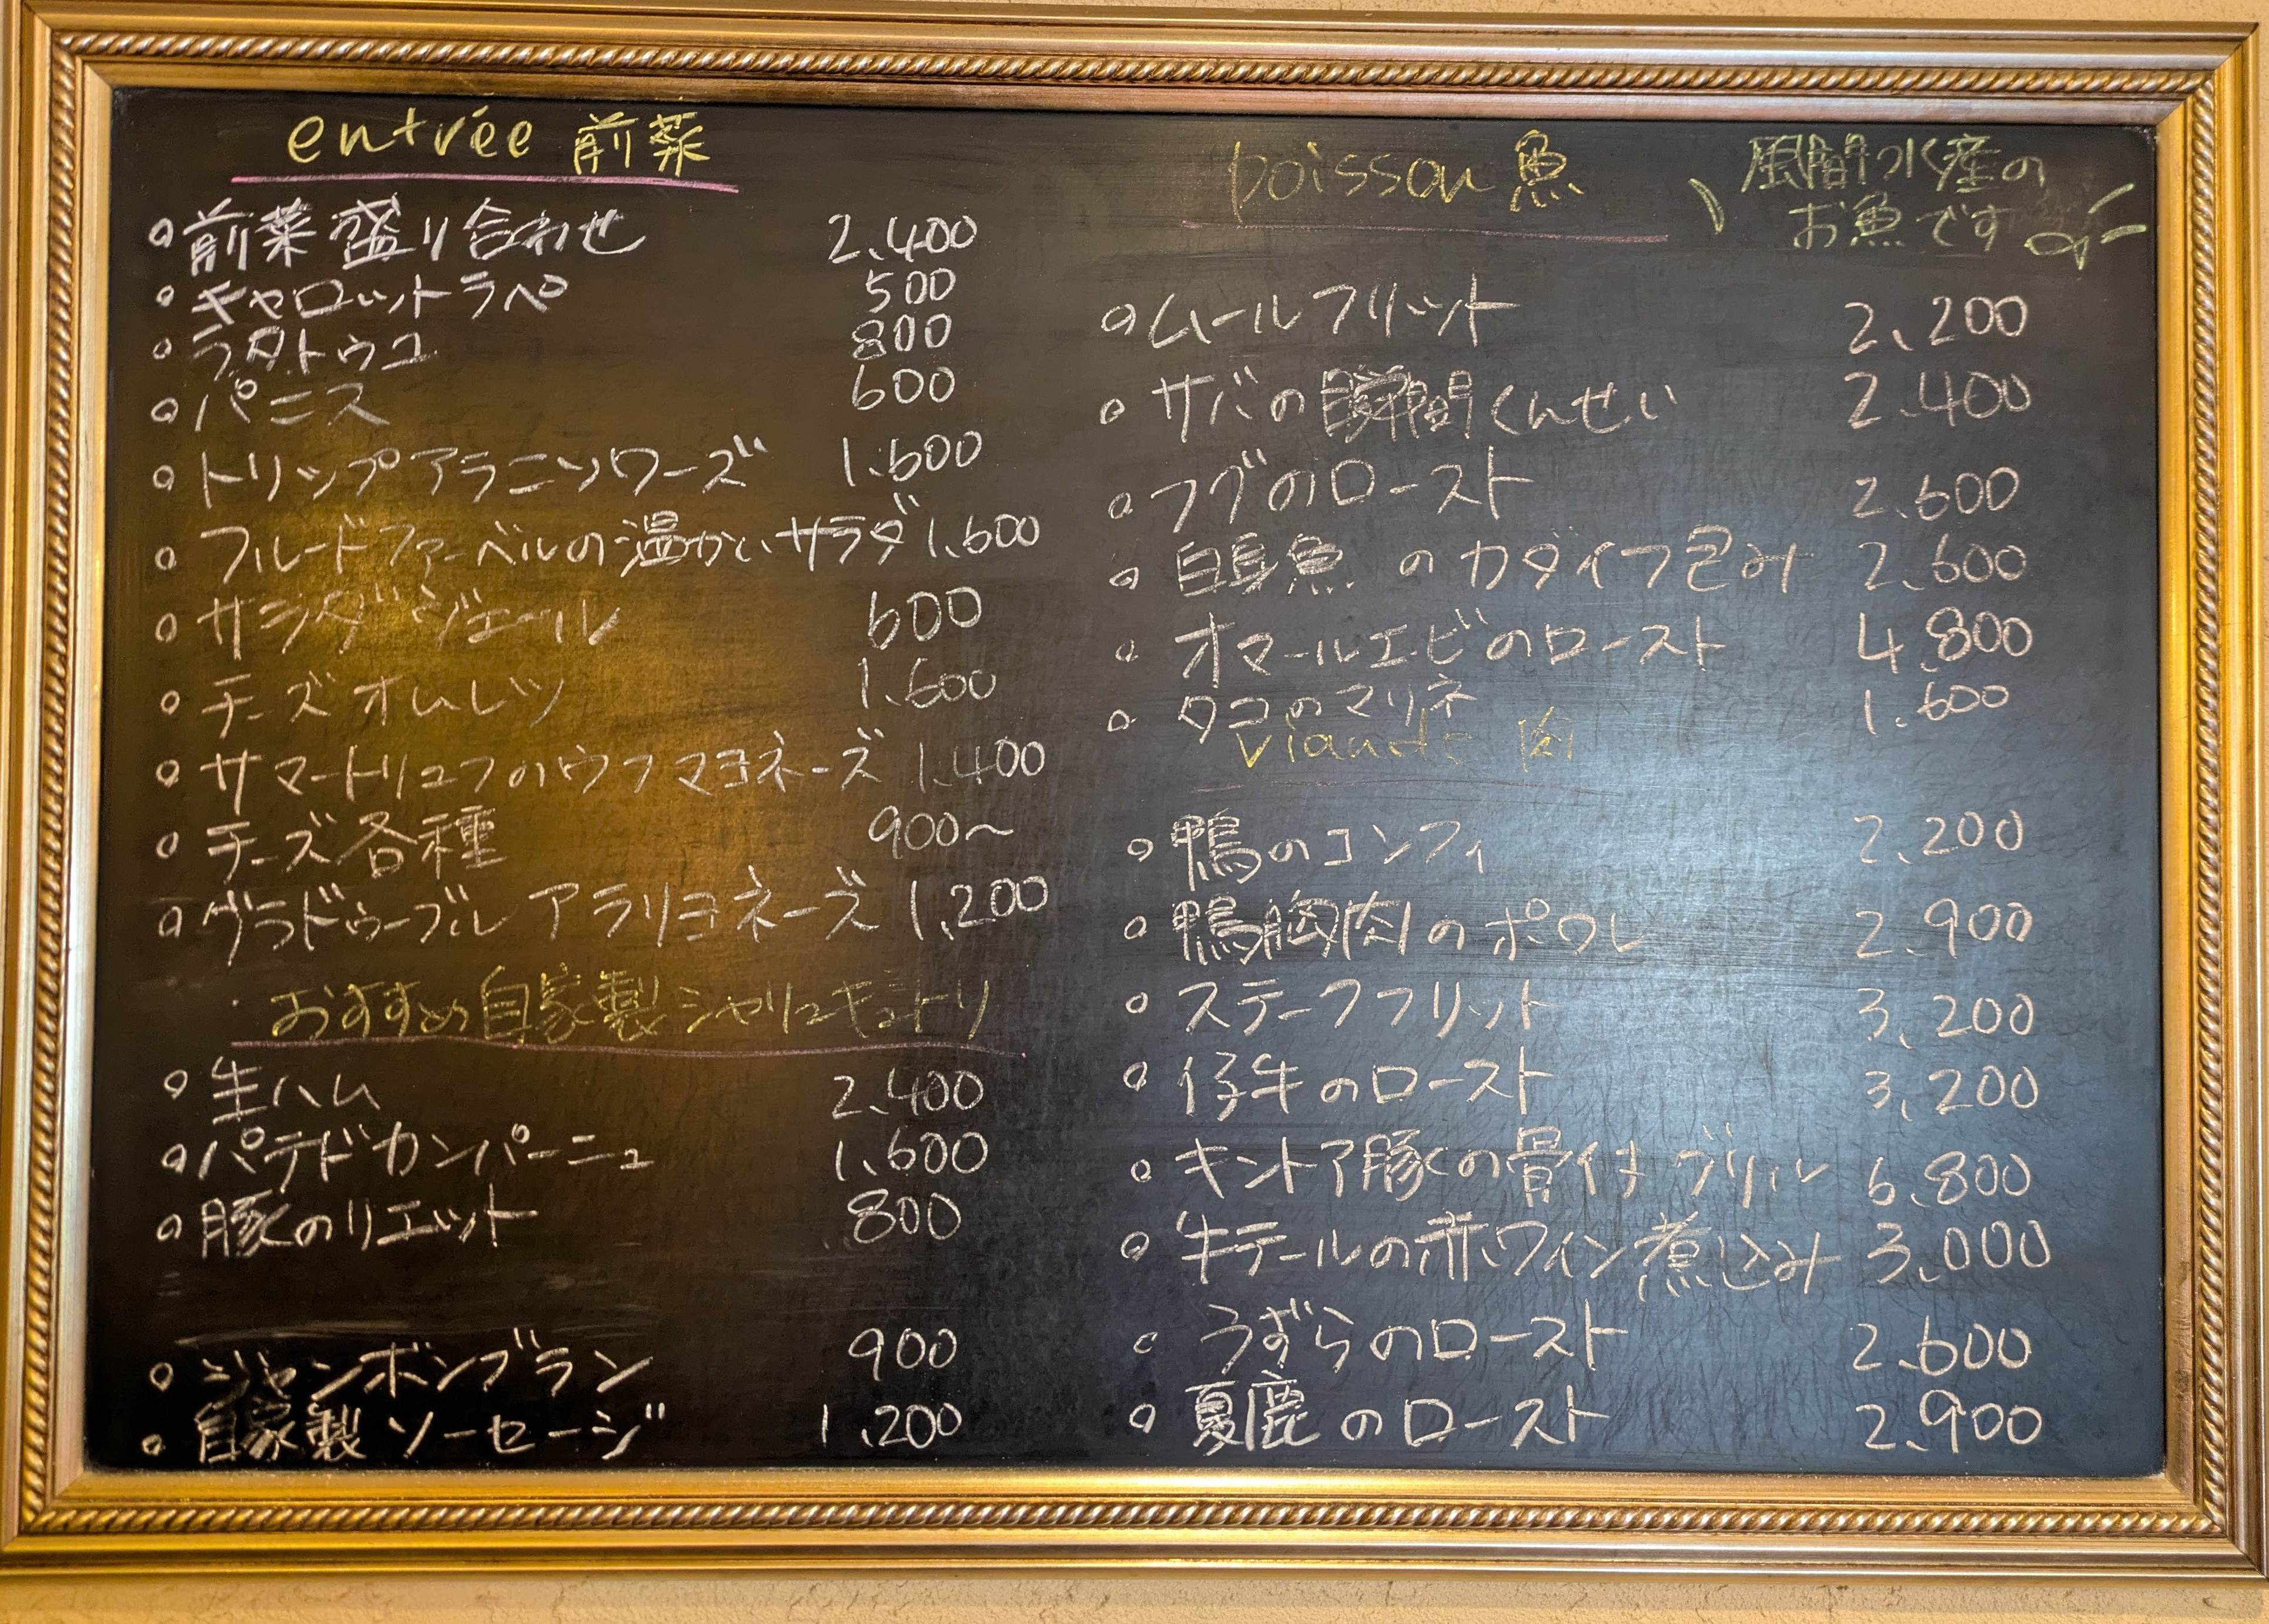 entrée 前菜
○前菜盛り合わせ 2.400
○キャロットラペ 500
○ラタトゥユ 800
○パニス 600
○トリップアラニソワーズ 1.600
○フルードファーベルの温かいサラダ 1.600
○サラダジェール 600
○チーズオムレツ 1.600
○サマートリュフのウフマヨネーズ 1.400
○チーズ各種 900〜
○グラドゥーブル アラリヨネーズ 1,200
おすすめ自家製シャリュキュトリ
○生ハム 2.400
○パテドカンパーニュ 1.600
○豚のリエット 800
○ジャンボンブラン 900
○自家製ソーセージ 1,200
poisson 魚
風間水産の
お魚です
○ムールフリット 2,200
○サバの瞬間くんせい 2.400
○フグのロースト 2.600
○白身魚のカダイフ包み 2.600
○オマールエビのロースト 4.800
○タコのマリネ 1.600
viande 肉
○鴨のコンフィ 2.200
○鴨胸肉のポワレ 2.900
○ステークフリット 3,200
○仔牛のロースト 3,200
○キントア豚の骨付グリル 6.800
○牛テールの赤ワイン煮込み 3,000
○うずらのロースト 2.600
○夏鹿のロースト 2.900